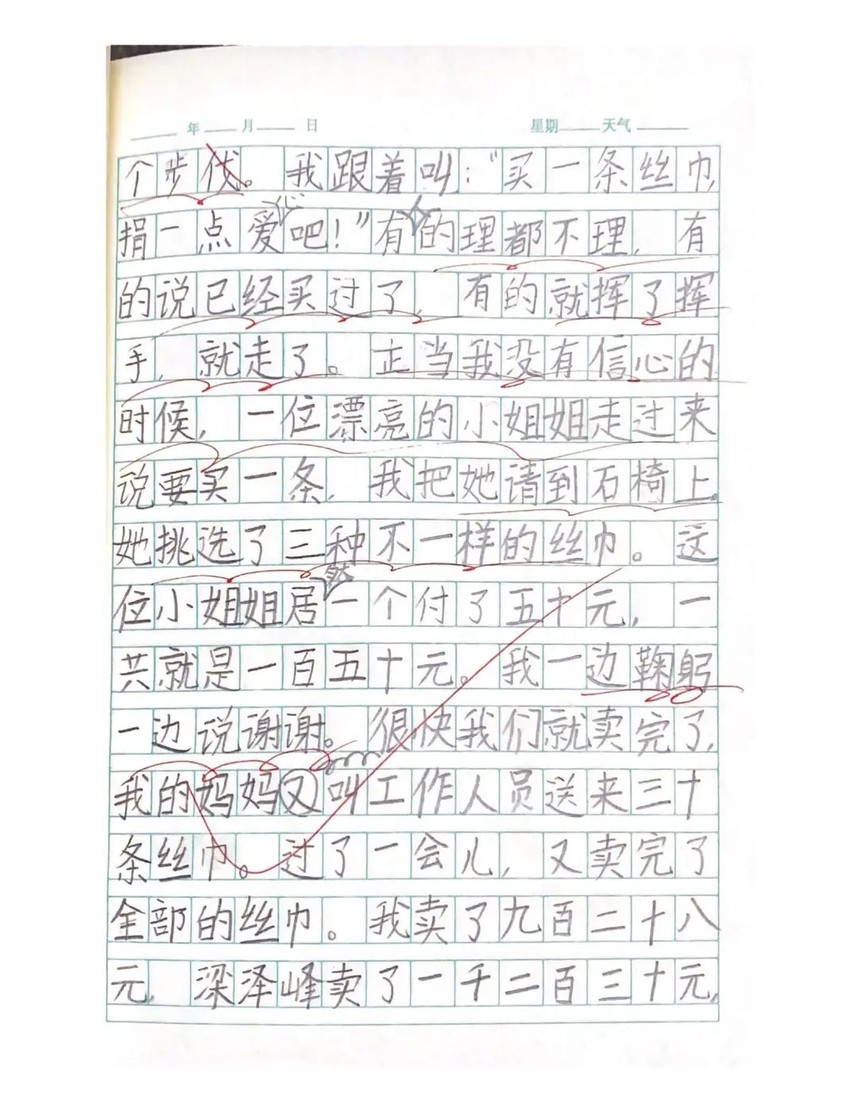 年 月 日 星期 天气
个步伐。我跟着叫："买一条丝巾,
捐一点爱心吧!"有的理都不理,有
的说已经买过了,有的就挥了挥
手,就走了。正当我没有信心的
时候,一位漂亮的小姐姐走过来
说要买一条,我把她请到石椅上,
她挑选了三种不一样的丝巾。这
位小姐姐居然一个付了五十元,一
共就是一百五十元。我一边鞠躬
一边说谢谢。很快我们就卖完了,
我的妈妈又叫工作人员送来三十
条丝巾。过了一会儿,又卖完了
全部的丝巾。我卖了九百二十八
元,梁泽峰卖了一千二百三十元,